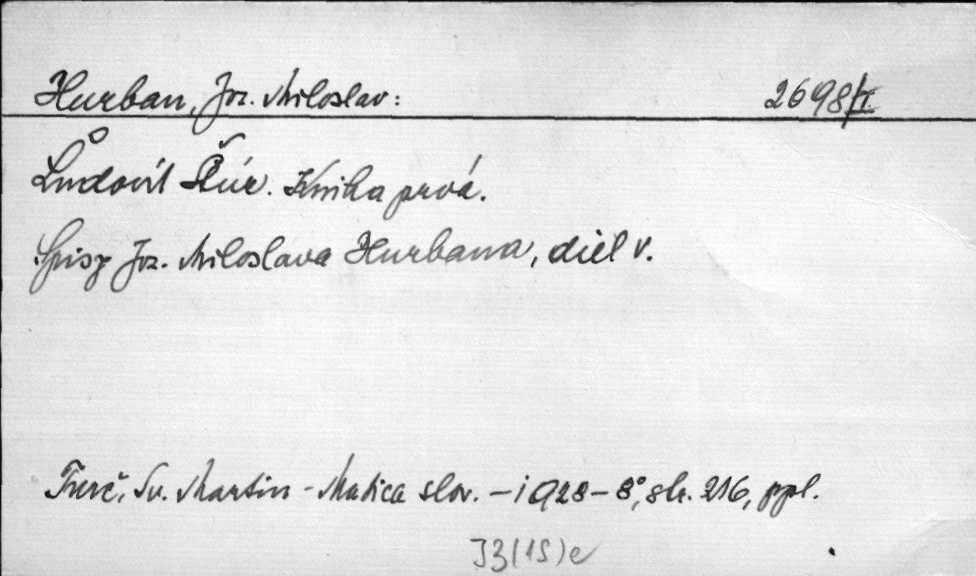 Hurban, Joz. Miloslav: 2698/I.
Ľudovít Štúr. Kniha prvá.
Spisy Joz. Miloslava Hurbana, diel V.
Turč. Sv. Martin - Matica slov. - 1928 - 8°, str. 216, ppl.
J3(15)e